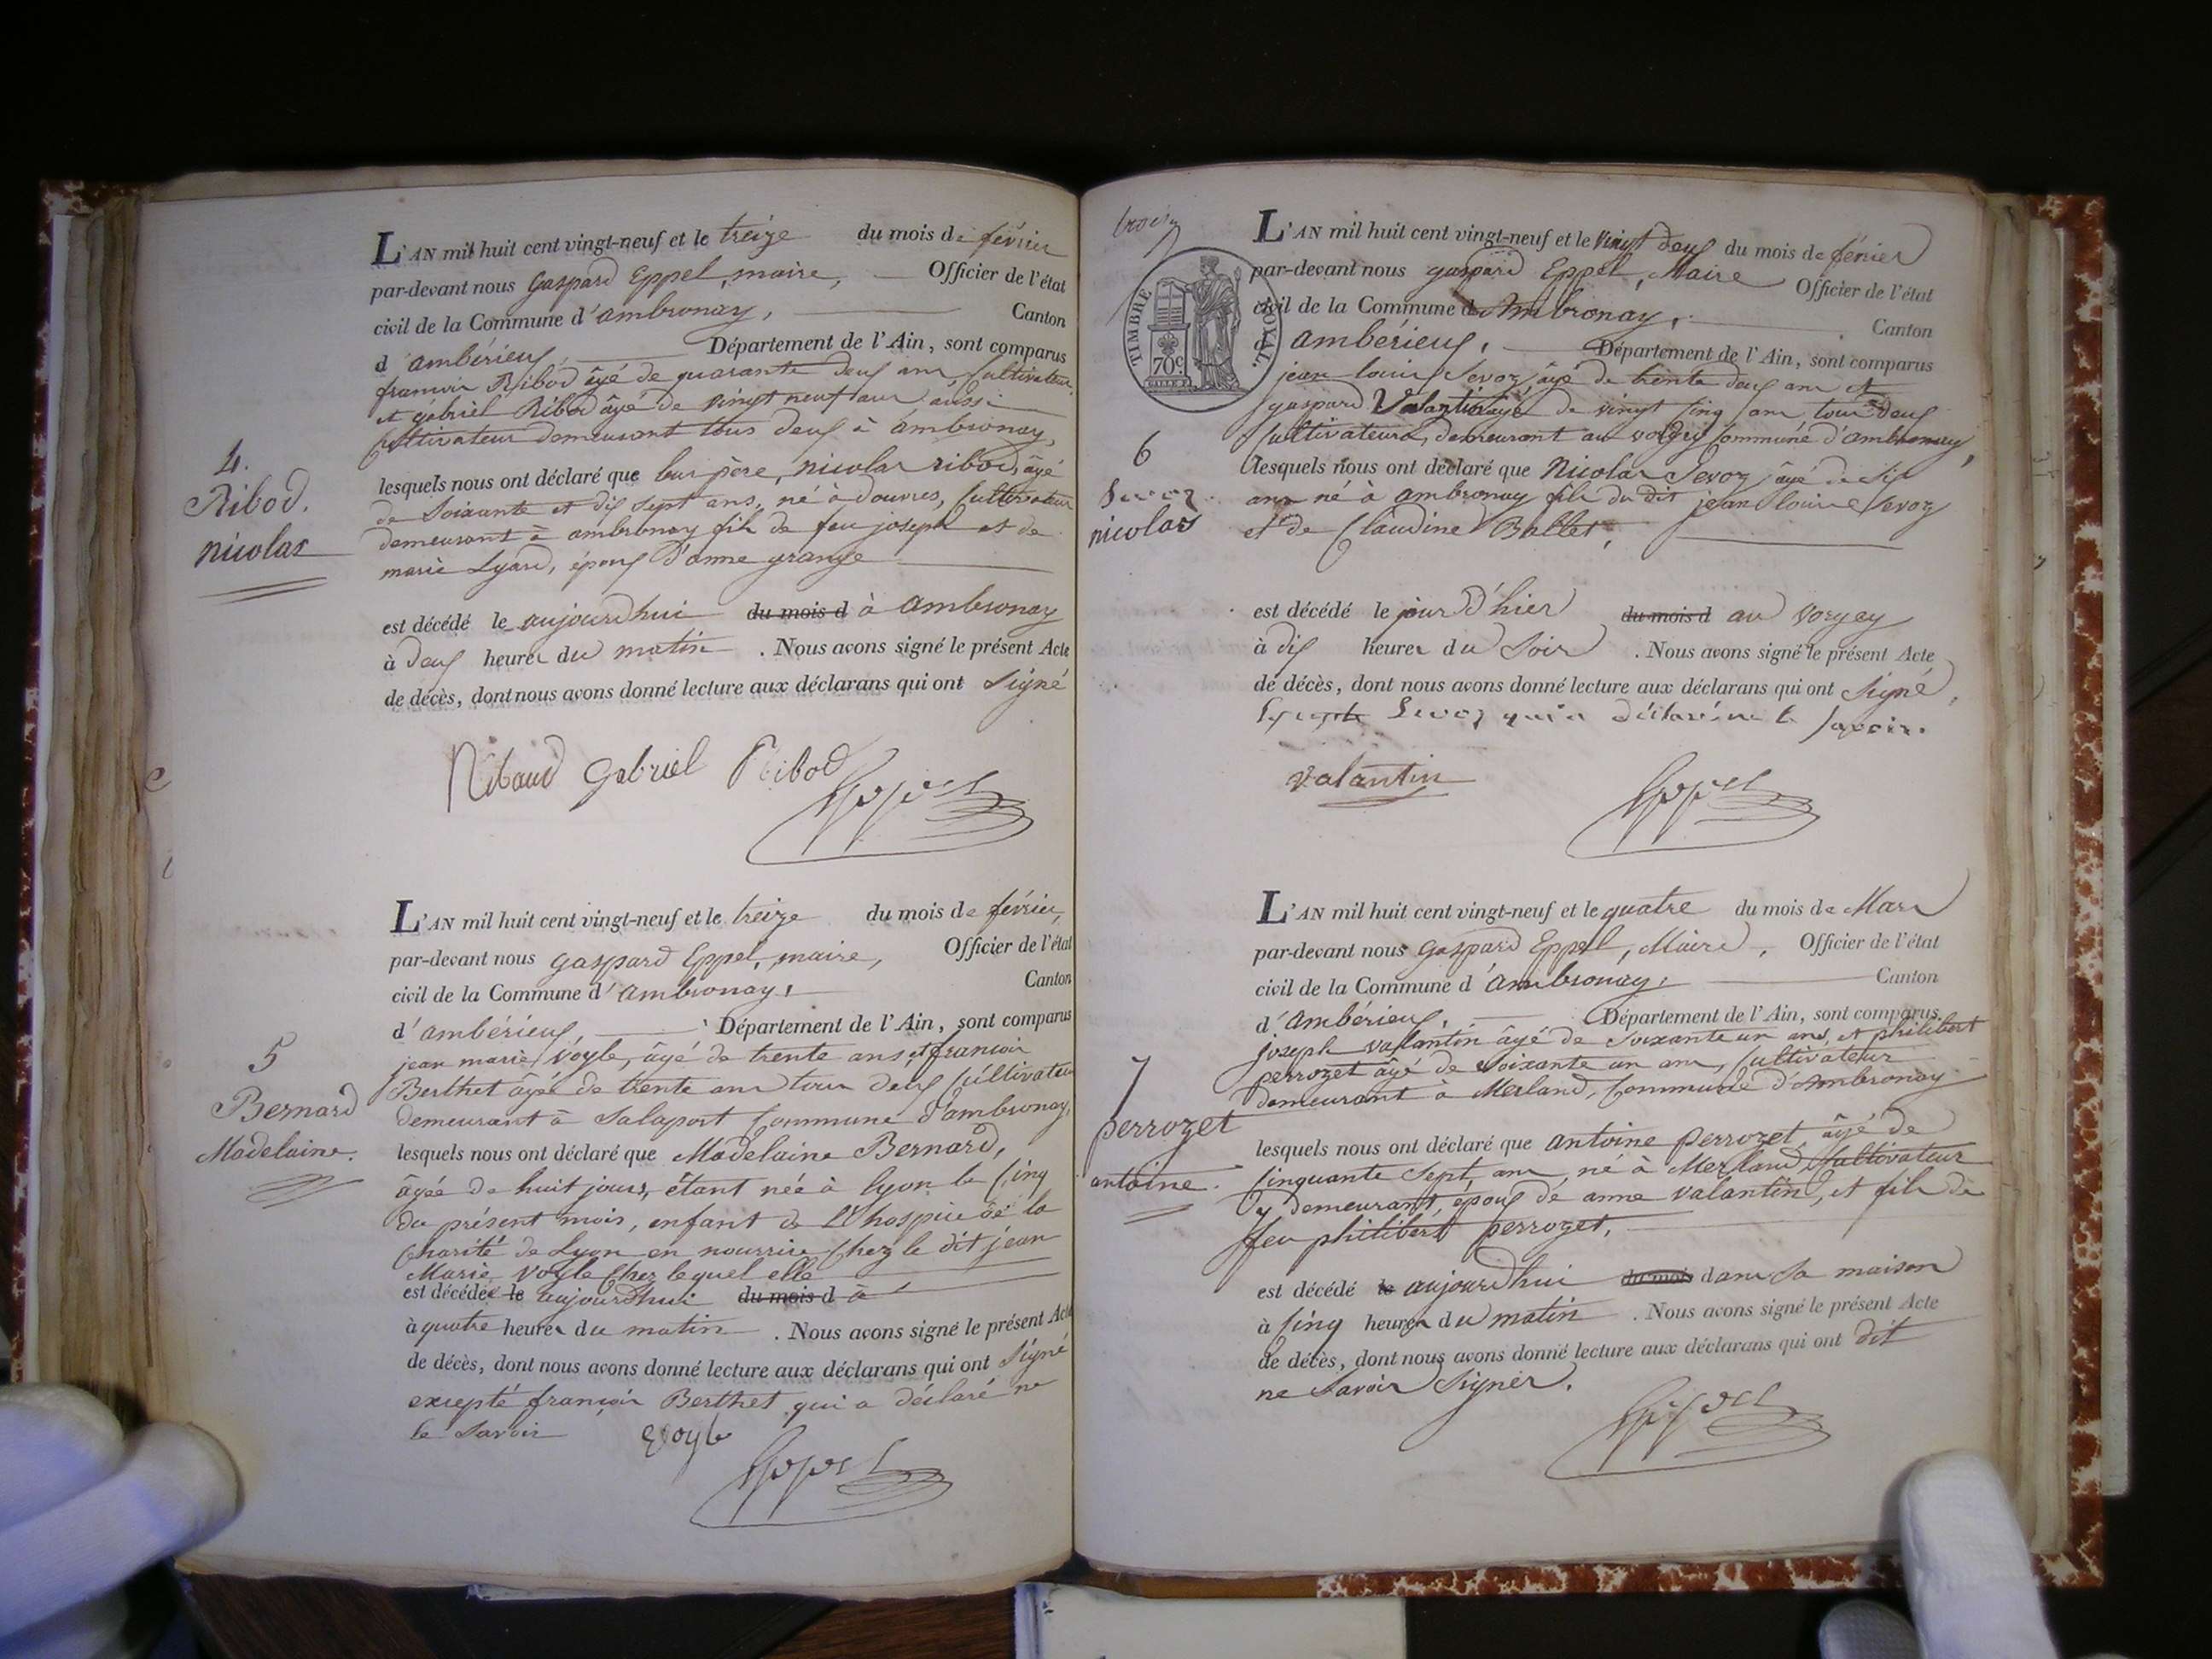 L'AN mil huit cent vingt-neuf et le treize du mois de février
par-devant nous Gaspard Eppel, maire, Officier de l'état
civil de la Commune d'ambronay, Canton
d'ambérieux, Département de l'Ain, sont comparus
francois Ribod âgé de quarante deux ans, Cultivateur
et gabriel Ribod âgé de vingt neuf ans aussi
Cultivateur demeurant tous deux à ambronay,
4.
Ribod.
nicolas
lesquels nous ont déclaré que leur père, nicolas ribod, âgé
de Soixante et dix sept ans, né à douvres, Cultivateur
demeurant à ambronay fils de feu joseph et de
marie Lyard, époux d'anne grange
est décédé le aujourdhui du mois d à ambronay
à deux heures du matin. Nous avons signé le présent Acte
de décès, dont nous avons donné lecture aux déclarans qui ont Signé
Ribaud Gabriel Ribod
Eppel
L'AN mil huit cent vingt-neuf et le treize du mois de février,
par-devant nous gaspard Eppel, maire, Officier de l'état
civil de la Commune d'ambronay, Canton
d'ambérieux, Département de l'Ain, sont comparus
jean marie Voyle, âgé de trente ans, et francois
Berthet âgé de trente ans tous deux Cultivateur
demeurant à Salaport Commune d'ambronay,
5
Bernard
Madelaine.
lesquels nous ont déclaré que Madelaine Bernard,
âgée de huit jours, étant née à lyon le Cinq
du présent mois, enfant de L'hospice de la
Charité de Lyon en nourrice Chez le dit jean
Marie Voyle Chez lequel elle
est décédée le aujourdhui du mois d à
à quatre heures du matin. Nous avons signé le présent Acte
de décès, dont nous avons donné lecture aux déclarans qui ont Signé
excepté francois Berthet qui a déclaré ne
le Savoir Voyle
Eppel
TIMBRE ROYAL.
70c.
L'AN mil huit cent vingt-neuf et le Vingt deux du mois de février
par-devant nous gaspard Eppel, Maire Officier de l'état
civil de la Commune d'Ambronay, Canton
d'ambérieux, Département de l'Ain, sont comparus
jean louis Sevoz âgé de trente deux ans et
gaspard Valantin âgé de vingt Cinq ans, tous deux
Cultivateurs, demeurant au vorgey Commune d'ambronay,
6
Sevoz
nicolas
lesquels nous ont déclaré que Nicolas Sevoz âgé de Six
ans né à ambronay fils du dit jean louis Sevoz
et de Claudine Ballet,
est décédé le jour d'hier du mois d au vorgey
à dix heures du Soir. Nous avons signé le présent Acte
de décès, dont nous avons donné lecture aux déclarans qui ont Signé,
Sevoz qui a déclaré ne le Savoir.
valantin
Eppel
L'AN mil huit cent vingt-neuf et le quatre du mois de Mars
par-devant nous Gaspard Eppel, Maire, Officier de l'état
civil de la Commune d'Ambronay, Canton
d'Ambérieux, Département de l'Ain, sont comparus
joseph valantin âgé de Soixante un ans, et philibert
perrozet âgé de Soixante un ans, Cultivateur
demeurant à Merland, Commune d'Ambronay
7
perrozet
antoine.
lesquels nous ont déclaré que antoine perrozet âgé de
Cinquante Sept, ans né à Merland Cultivateur
y demeurant, époux de anne valantin, et fils de
feu philibert perrozet,
est décédé le aujourdhui du mois dans Sa maison
à Cinq heures du matin. Nous avons signé le présent Acte
de décès, dont nous avons donné lecture aux déclarans qui ont dit
ne Savoir Signer.
Eppel